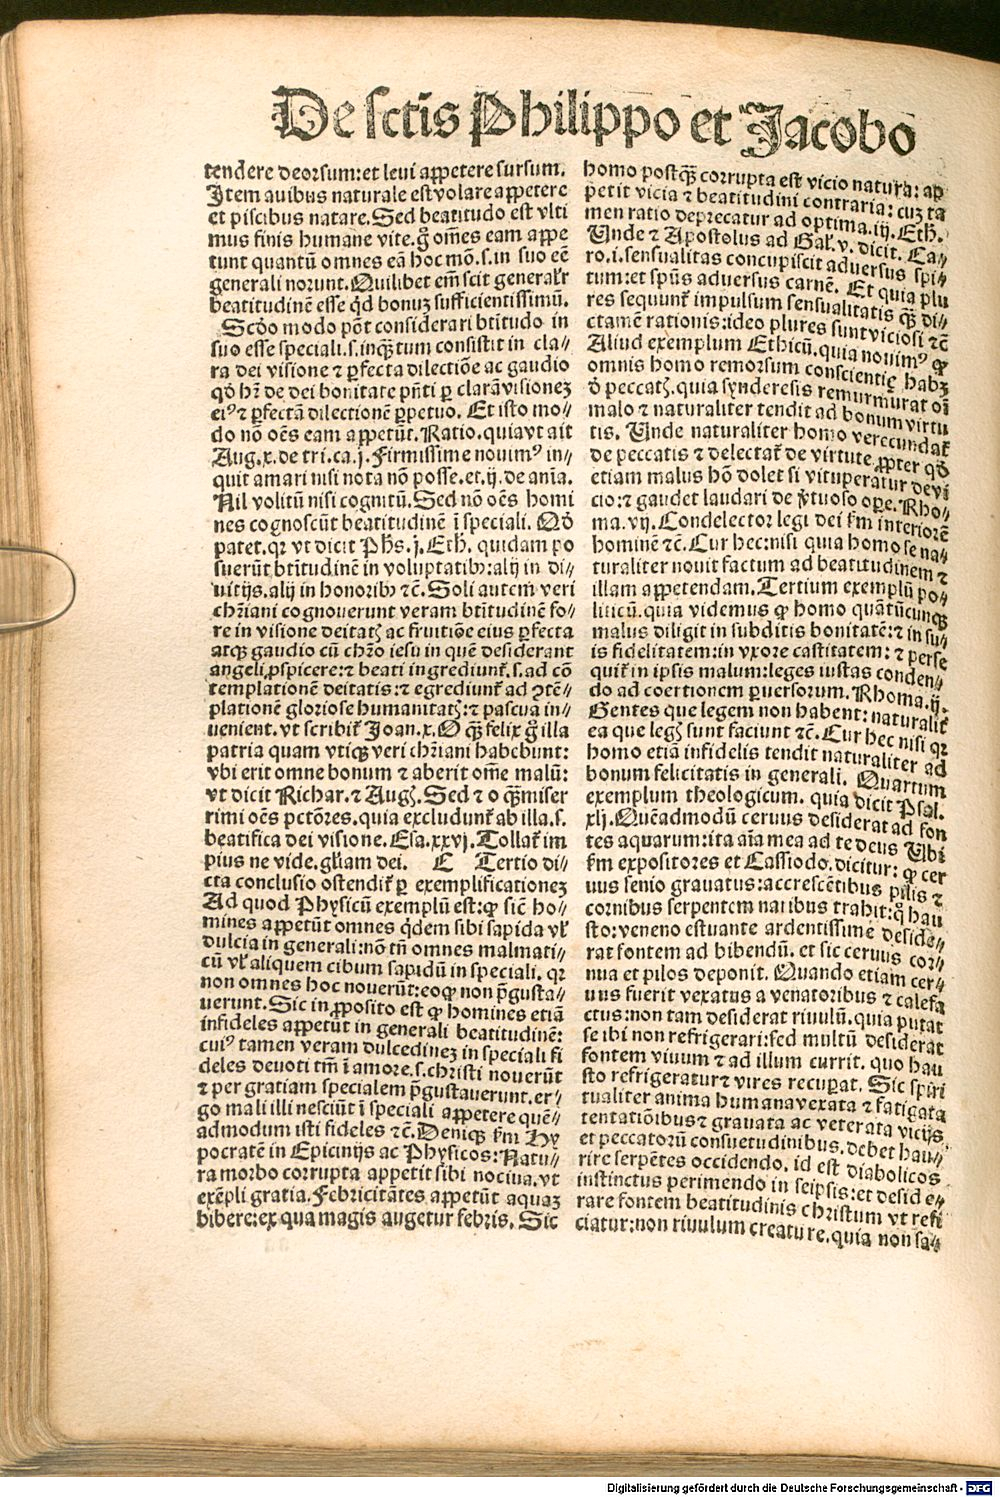 De sctis Philippo et Jacobo
tendere deorsum: et levi appetere sursum.
Item auibus naturale est volare appetere
et piscibus natare. Sed beatitudo est vlti
mus finis humane vite. g̊ om̃es eam appe
tunt quantũ omnes eã hoc mõ. s. in suo eẽ
generali norunt. Quilibet em̃ scit generalr̃
beatitudinẽ esse qd̃ bonuȝ sufficientissimũ.
Scd̃o modo pñt considerari btĩtudo in
suo esse speciali. s. inqꝫ tum consistit in cla⸗
ra dei visione ⁊ ꝑfecta dilectiõe ac gaudio
qd̃ hr̃ de dei bonitate pñti ꝑ clarã visionez
eiꝰ ⁊ ꝑfectã dilectionẽ ꝑpetuo. Et isto mo⸗
do nõ oẽs eam appetũt. Ratio. quia vt ait
Aug. x. de tri. ca. j. Firmissime nouimꝰ in⸗
quit amari nisi nota nõ posse. et. ij. de aĩa.
Nil volitũ nisi cognitũ. Sed nõ oẽs homi
nes cognoscũt beatitudinẽ ĩ speciali. Qd̃
patet. qꝛ vt dicit Phs̃. j. Eth. quidam po
suerũt btĩtudinẽ in voluptatibꝫ: alij in di⸗
uitijs. alij in honoribꝫ ⁊c̃. Soli autem veri
chr̃iani cognouerunt veram btĩtudinẽ fo⸗
re in visione deitatꝭ ac fruitiõe eius ꝑfecta
atqꝫ gaudio cũ chr̃o iesu in quẽ desiderant
angeli ꝓspicere: ⁊ beati ingrediunt᷑. s. ad cõ
templationẽ deitatis: ⁊ egrediunt᷑ ad ꝯtẽ⸗
plationẽ gloriose humanitatꝭ: ⁊ pascua in⸗
uenient. vt scribit᷑ Joan. x. O qꝫ felix g̊ illa
patria quam vtiqꝫ veri chr̃iani habebunt:
vbi erit omne bonum ⁊ aberit om̃e malũ:
vt dicit Richar. ⁊ Augꝭ. Sed ⁊ o qꝫ miser
rimi oẽs pctõres. quia excludunt᷑ ab illa. s.
beatifica dei visione. Esa. xxvj. Tollat᷑ im
pius ne vide. gliam dei. C Tertio di⸗
cta conclusio ostendit᷑ ꝑ exemplificationez
Ad quod Physicũ exemplũ est: ꝙ sic̃ ho⸗
mines appetũt omnes qd̃em sibi sapida vl̃
dulcia in generali: nõ tñ omnes malmati⸗
cũ vl̃ aliquem cibum sapidũ in speciali. qꝛ
non omnes hoc nouerũt: eoꝙ non p̃gusta⸗
uerunt. Sic in ꝓposito est ꝙ homines etiã
infideles appetũt in generali beatitudinẽ:
cuiꝰ tamen veram dulcedinez in speciali fi
deles deuoti tm̃ ĩ amore. s. christi nouerũt
⁊ per gratiam specialem p̃gustauerunt. er⸗
go mali illi nesciũt ĩ speciali appetere quẽ⸗
admodum isti fideles ⁊c̃. Deniqꝫ ẜm Hy
pocratẽ in Epicinijs ac Physicos: Natu⸗
ra morbo corrupta appetit sibi nociua. vt
exẽpli gratia. Febricitãtes appetũt aquaȝ
bibere: ex qua magis augetur febris. Sic
homo postqꝫ corrupta est vicio natura: ap
petit vicia ⁊ beatitudini contraria: cuȝ ta
men ratio deprecatur ad optima. iij. Eth.
Unde ⁊ Apostolus ad Gal. v. dicit. Ca⸗
ro. i. sensualitas concupiscit aduersus spi⸗
tum: et spũs aduersus carnẽ. Et quia plu
res sequunt᷑ impulsum sensualitatis qꝫ di⸗
ctamẽ rationis: ideo plures sunt viciosi ⁊c̃
Aliud exemplum Ethicũ. quia nouimꝰ ꝙ
omnis homo remorsum conscientie habȝ
d̃ peccatꝭ. quia synderesis remurmurat oĩ
malo ⁊ naturaliter tendit ad bonum virtu
tis. Unde naturaliter homo verecundat᷑
de peccatis ⁊ delectat᷑ de virtute. ꝓpter qd̃
etiam malus hõ dolet si vituperatur de vi
cio: ⁊ gaudet laudari de v̓tuoso oꝑe. Rho⸗
ma. vij. Condelector legi dei ẜm interiorẽ
hominẽ ⁊c̃. Cur hec: nisi quia homo se na⸗
turaliter nouit factum ad beatitudinem ⁊
illam appetendam. Tertium exemplũ po⸗
liticũ. quia videmus ꝙ homo quãtũcunqꝫ
malus diligit in subditis bonitatẽ: ⁊ in su⸗
is fidelitatem: in vxore castitatem: ⁊ perse
quit᷑ in ipsis malum: leges iustas conden⸗
do ad coertionem ꝑuersorum. Rhoma. ij.
Gentes que legem non habent: naturalit᷑
ea que legꝭ sunt faciunt ⁊c̃. Cur hec nisi qꝛ
homo etiã infidelis tendit naturaliter ad
bonum felicitatis in generali. Quartum
exemplum theologicum. quia dicit Psal.
xlj. Quẽadmodũ ceruus desiderat ad fon
tes aquarum: ita aĩa mea ad te deus Ubi
ẜm expositores et Cassiodo. dicitur: ꝙ cer
uus senio grauatus: accrescẽtibus pilis ⁊
cornibus serpentem naribus trahit: q̊ hau
sto: veneno estuante ardentissime deside⸗
rat fontem ad bibendũ. et sic ceruus cor⸗
nua et pilos deponit. Quando etiam cer⸗
uus fuerit vexatus a venatoribus ⁊ calefa
ctus: non tam desiderat riuulũ. quia putat
se ibi non refrigerari: sed multũ desiderat
fontem viuum ⁊ ad illum currit. quo hau
sto refrigeratur ⁊ vires recuꝑat. Sic spiri
tualiter anima humana vexata ⁊ fatigata
tentatiõibus ⁊ grauata ac veterata vicijs
et peccatorũ consuetudinibus. debet hau⸗
rire serpẽtes occidendo. id est diabolicos
instinctus perimendo in seipsis: et desid e⸗
rare fontem beatitudinis christum vt refi
ciatur: non riuulum creature. quia non sa⸗
Digitalisierung gefördert durch die Deutsche Forschungsgemeinschaft - DFG